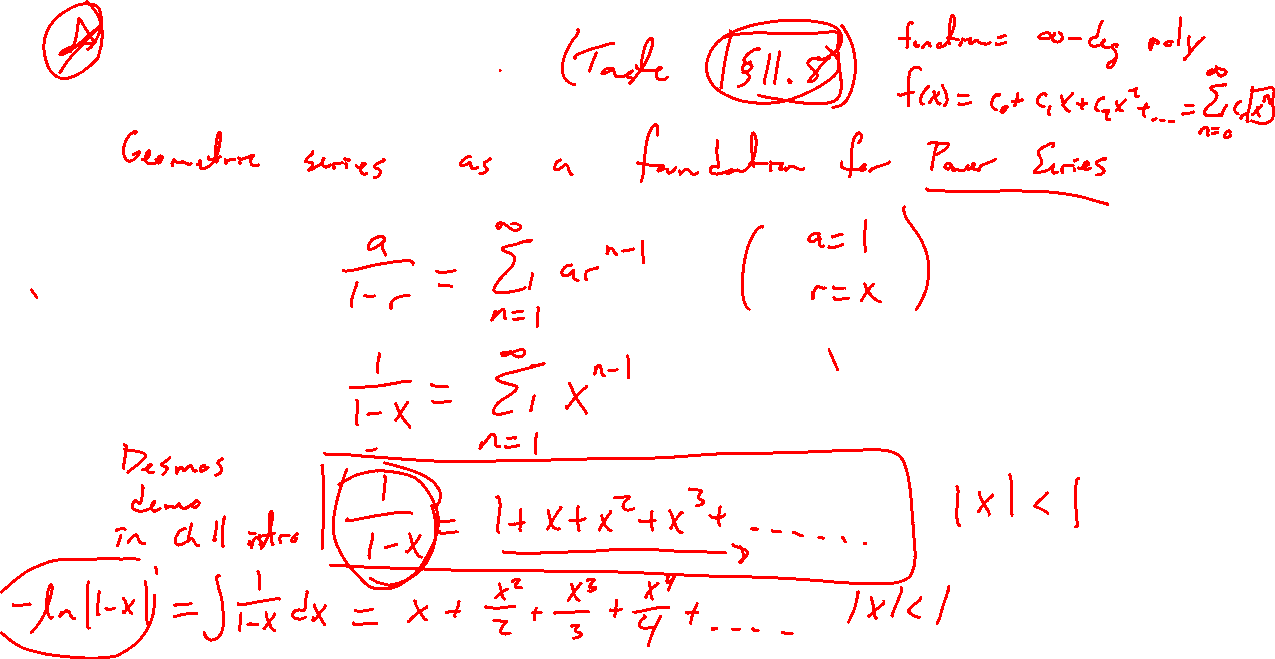 (Taste §11.8)
function = ∞-deg poly
f(x) = c₀ + c₁x + c₂x² + .... = ∑_{n=0}^{∞} cₙxⁿ
Geometric series as a foundation for Power Series
a/(1-r) = ∑_{n=1}^{∞} ar^{n-1} (a=1 r=x)
1/(1-x) = ∑_{n=1}^{∞} x^{n-1}
Desmos
demo
in ch 11 intro
1/(1-x) = 1 + x + x² + x³ + ....... |x| < 1
-ln|1-x| = ∫ 1/(1-x) dx = x + x²/2 + x³/3 + x⁴/4 + ..... |x| < 1